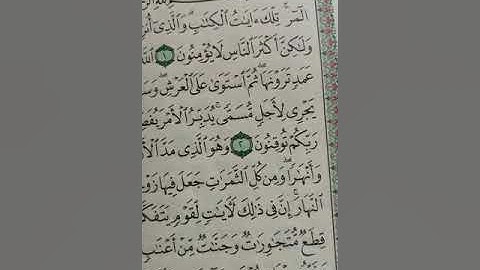 الٓمٓر ۚ تِلْكَ ءَايَٰتُ ٱلْكِتَٰبِ ۗ وَٱلَّذِىٓ
وَلَٰكِنَّ أَكْثَرَ ٱلنَّاسِ لَا يُؤْمِنُونَ ١ ٱللَّهُ
عَمَدٍ تَرَوْنَهَا ۖ ثُمَّ ٱسْتَوَىٰ عَلَى ٱلْعَرْشِ ۖ
يَجْرِى لِأَجَلٍ مُّسَمًّى ۚ يُدَبِّرُ ٱلْأَمْرَ
رَبِّكُمْ تُوقِنُونَ ٢ وَهُوَ ٱلَّذِى مَدَّ
وَأَنْهَٰرًا ۖ وَمِن كُلِّ ٱلثَّمَرَٰتِ جَعَلَ فِيهَا
ٱلنَّهَارَ ۚ إِنَّ فِى ذَٰلِكَ لَءَايَٰتٍ لِّقَوْمٍ
قِطَعٌ مُّتَجَٰوِرَٰتٌ وَجَنَّٰتٌ مِّنْ أَعْنَٰبٍ